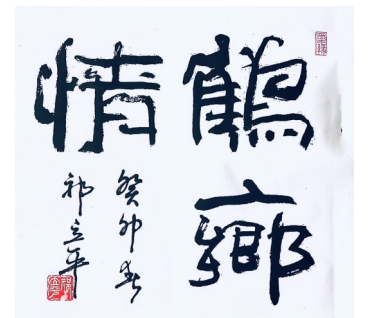 鶴鄉
情
癸卯春
祁立平